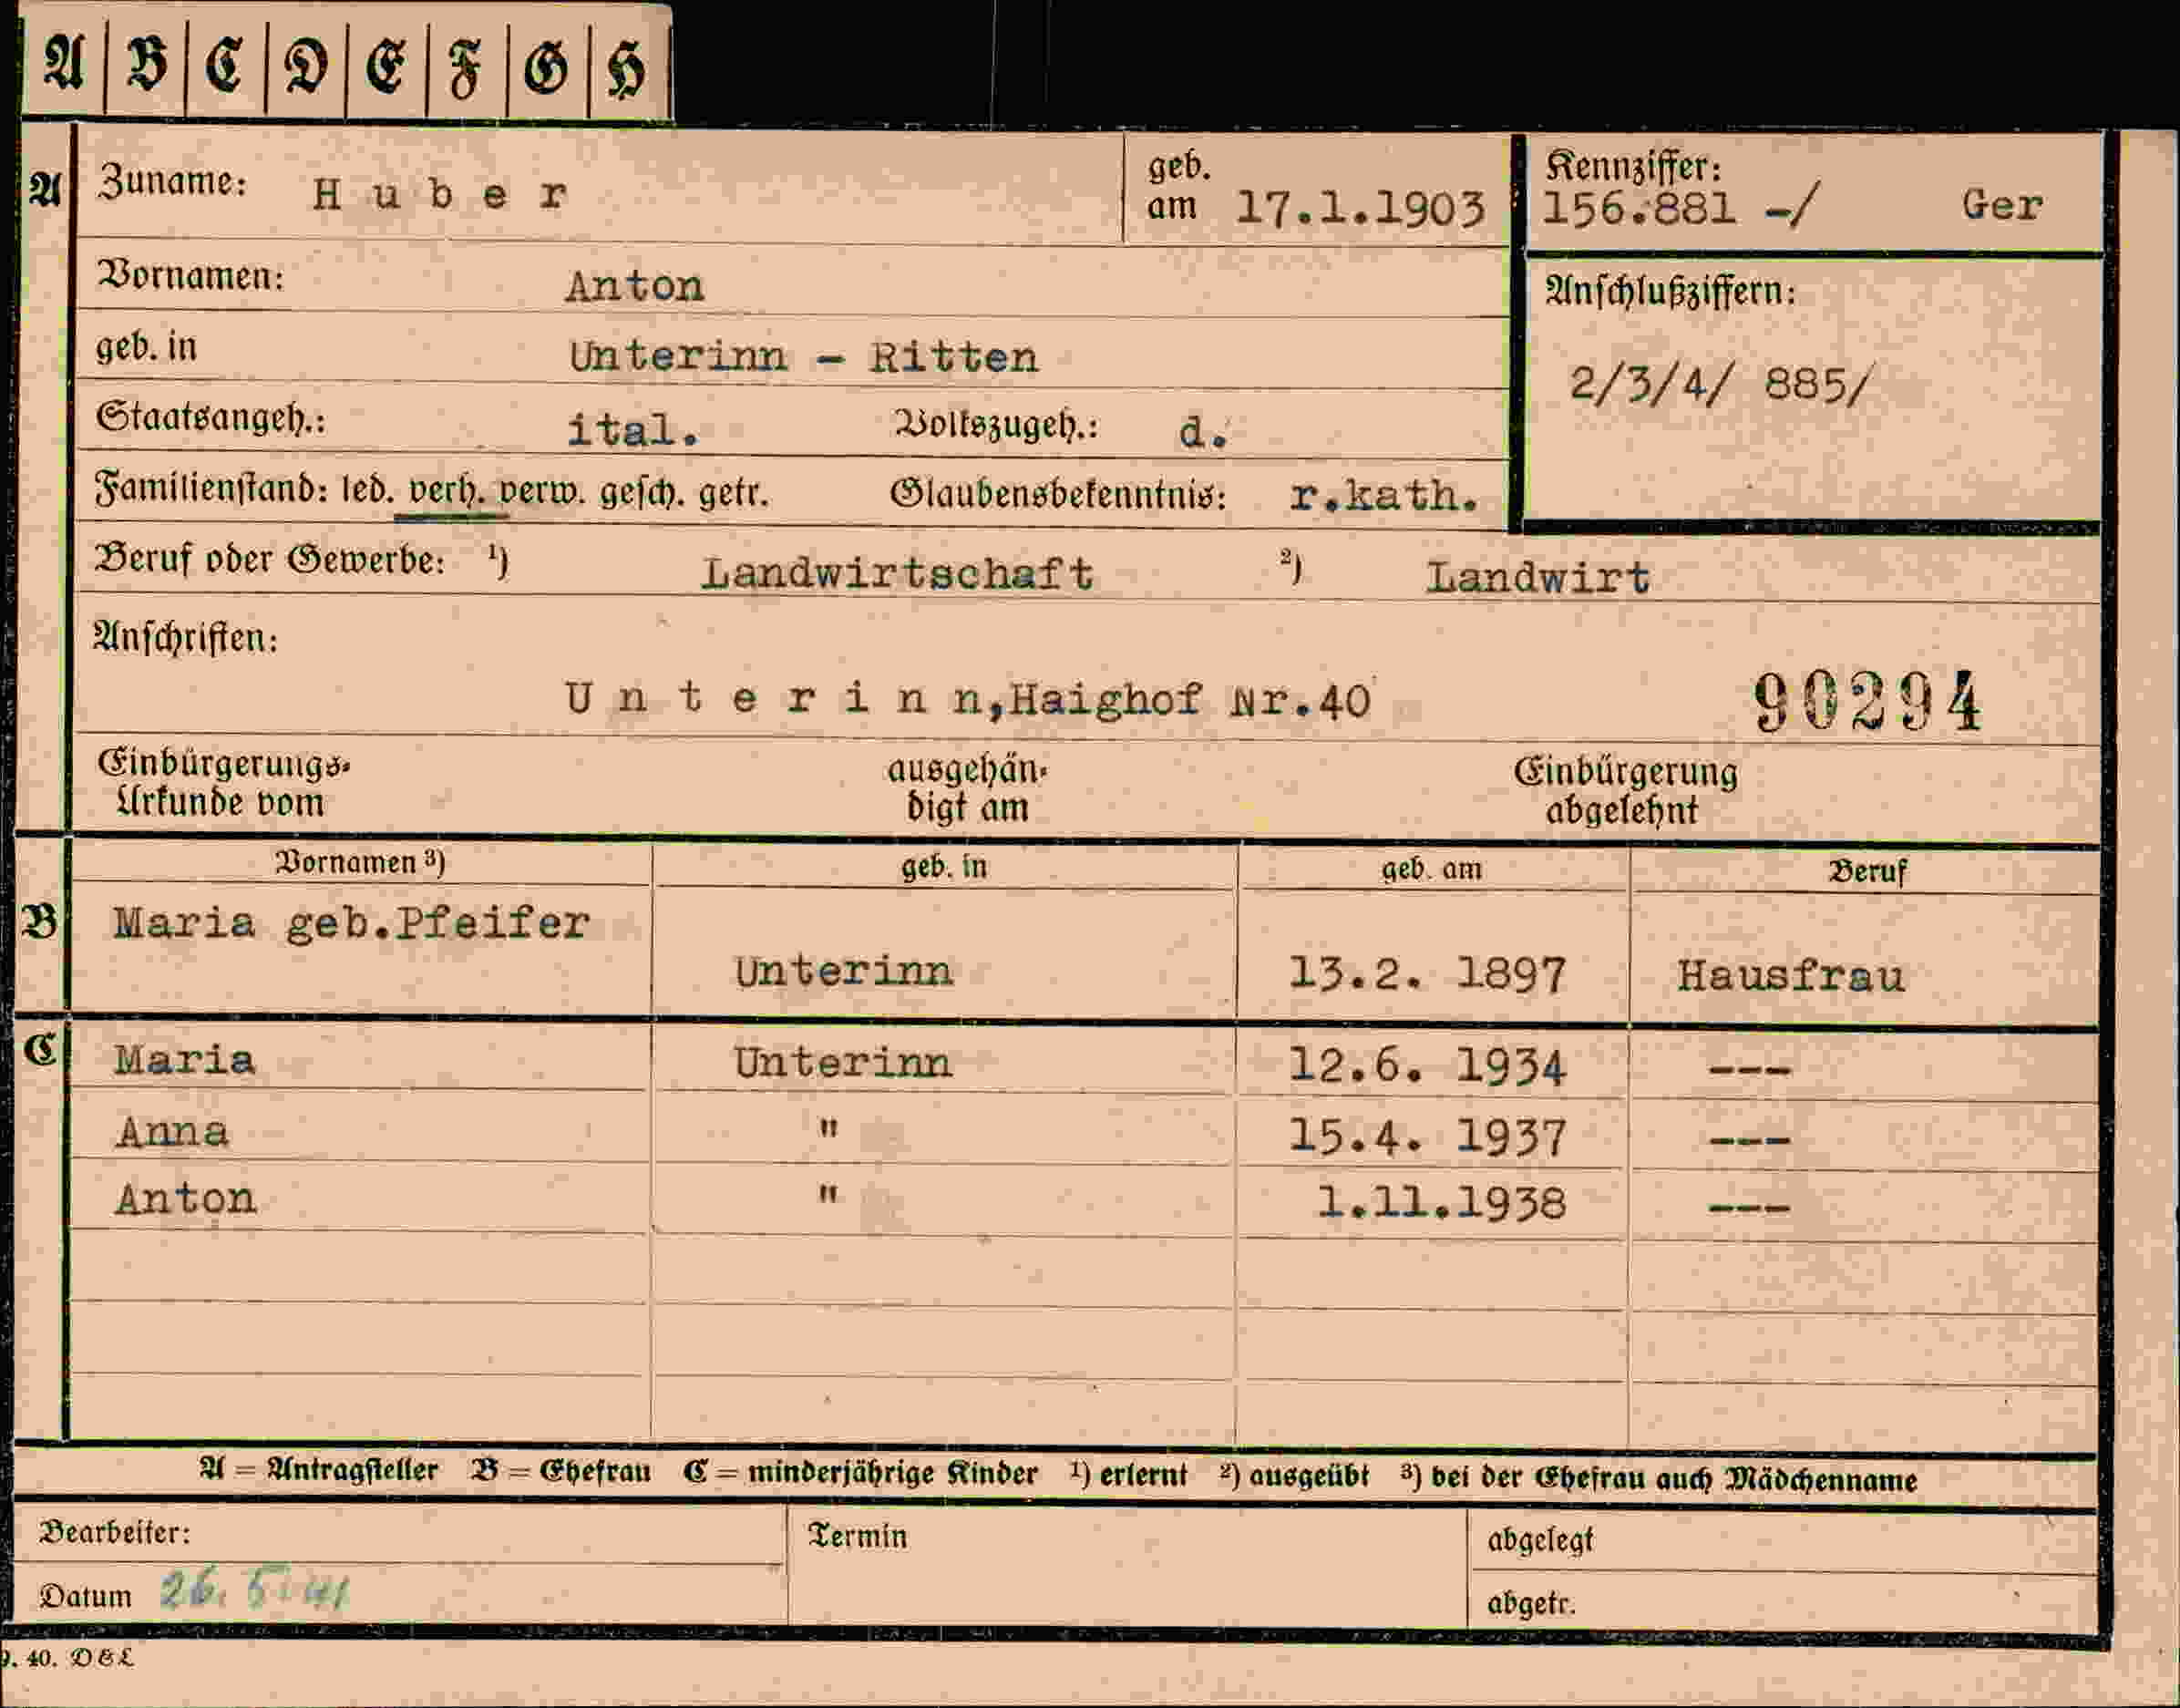 A B C D E F G H
A Zuname: H u b e r geb. am 17.1.1903 Kennziffer: 156.881 -/ Ger
Vornamen: Anton Anschlußziffern:
geb. in Unterinn - Ritten 2/3/4/ 885/
Staatsangeh.: ital. Volkszugeh.: d.
Familienstand: led. verh. verw. gesch. getr. Glaubensbekenntnis: r.kath.
Beruf oder Gewerbe: 1) Landwirtschaft 2) Landwirt
Anschriften:
U n t e r i n n,Haighof Nr.40 90294
Einbürgerungs- ausgehän- Einbürgerung
Urkunde vom digt am abgelehnt
Vornamen 3) geb. in geb. am Beruf
B Maria geb.Pfeifer
Unterinn 13.2. 1897 Hausfrau
C Maria Unterinn 12.6. 1934 ---
Anna " 15.4. 1937 ---
Anton " 1.11.1938 ---
A = Antragsteller B = Ehefrau C = minderjährige Kinder 1) erlernt 2) ausgeübt 3) bei der Ehefrau auch Mädchenname
Bearbeiter: Termin abgelegt
Datum 26. 5. 41 abgetr.
9. 40. DEL